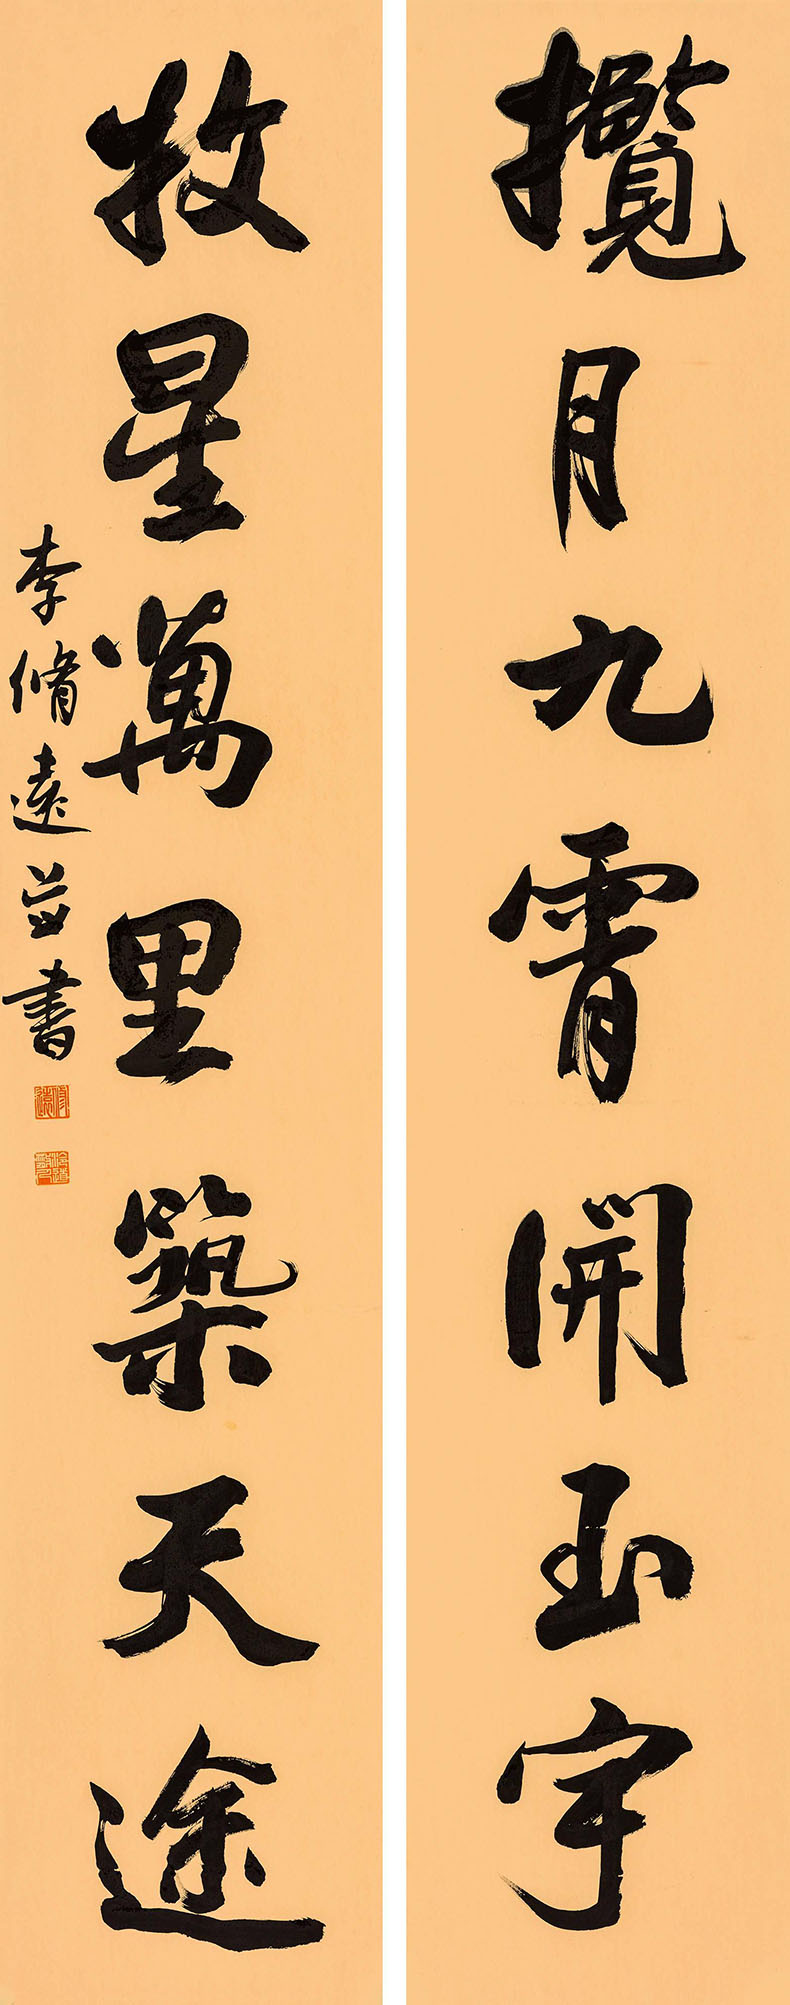 攬月九霄開玉宇
牧星萬里築天途
李脩遠並書
修遠